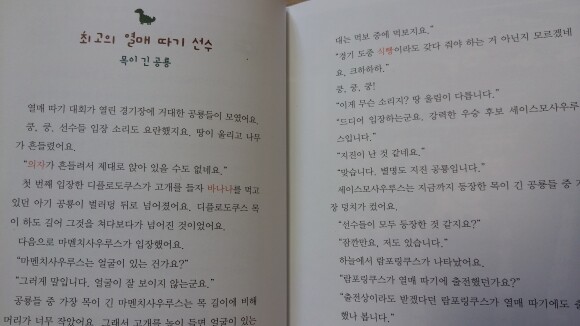 최고의 열매 따기 선수
목이 긴 공룡
열매 따기 대회가 열린 경기장에 거대한 공룡들이 모였어요.
쿵, 쿵. 선수들 입장 소리도 요란했지요. 땅이 울리고 나무
가 흔들렸어요.
"의자가 흔들려서 제대로 앉아 있을 수도 없네요."
첫 번째 입장한 디플로도쿠스가 고개를 들자 바나나를 먹고
있던 아기 공룡이 벌러덩 뒤로 넘어졌어요. 디플로도쿠스 목
이 하도 길어 그것을 쳐다보다가 넘어진 것이었어요.
다음으로 마멘치사우루스가 입장했어요.
"마멘치사우루스는 얼굴이 있는 건가요?"
"그러게 말입니다. 얼굴이 잘 보이지 않는군요."
공룡들 중 가장 목이 긴 마멘치사우루스는 목 길이에 비해
머리가 너무 작았어요. 그래서 고개를 높이 들면 얼굴이 있는
대는 먹보 중에 먹보지요."
"경기 도중 식빵이라도 갖다 줘야 하는 거 아닌지 모르겠네
요. 크하하하."
쿵, 쿵, 쿵!
"이게 무슨 소리지? 땅 울림이 다릅니다."
"드디어 입장하는군요. 강력한 우승 후보 세이스모사우루
스입니다."
"지진이 난 것 같네요."
"맞습니다. 별명도 지진 공룡입니다."
세이스모사우루스는 지금까지 등장한 목이 긴 공룡들 중 가
장 덩치가 컸어요.
"선수들이 모두 등장한 것 같지요?"
"잠깐만요. 저도 있습니다."
하늘에서 람포링쿠스가 나타났어요.
"람포링쿠스가 열매 따기에 출전했던가요?"
"출전상이라도 받겠다던 람포링쿠스가 열매 따기에도 출전
했나 봅니다."